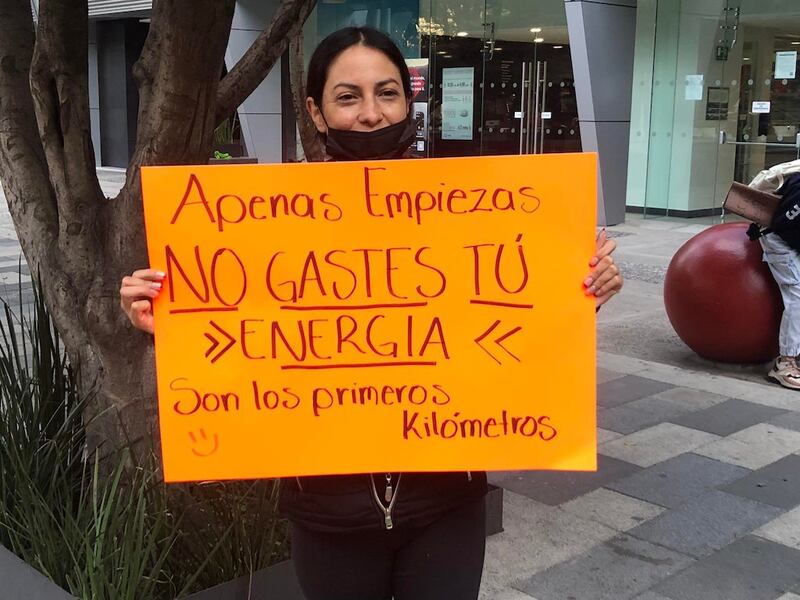 Apenas Empiezas
NO GASTES TÚ
»ENERGIA«
Son los primeros
Kilómetros